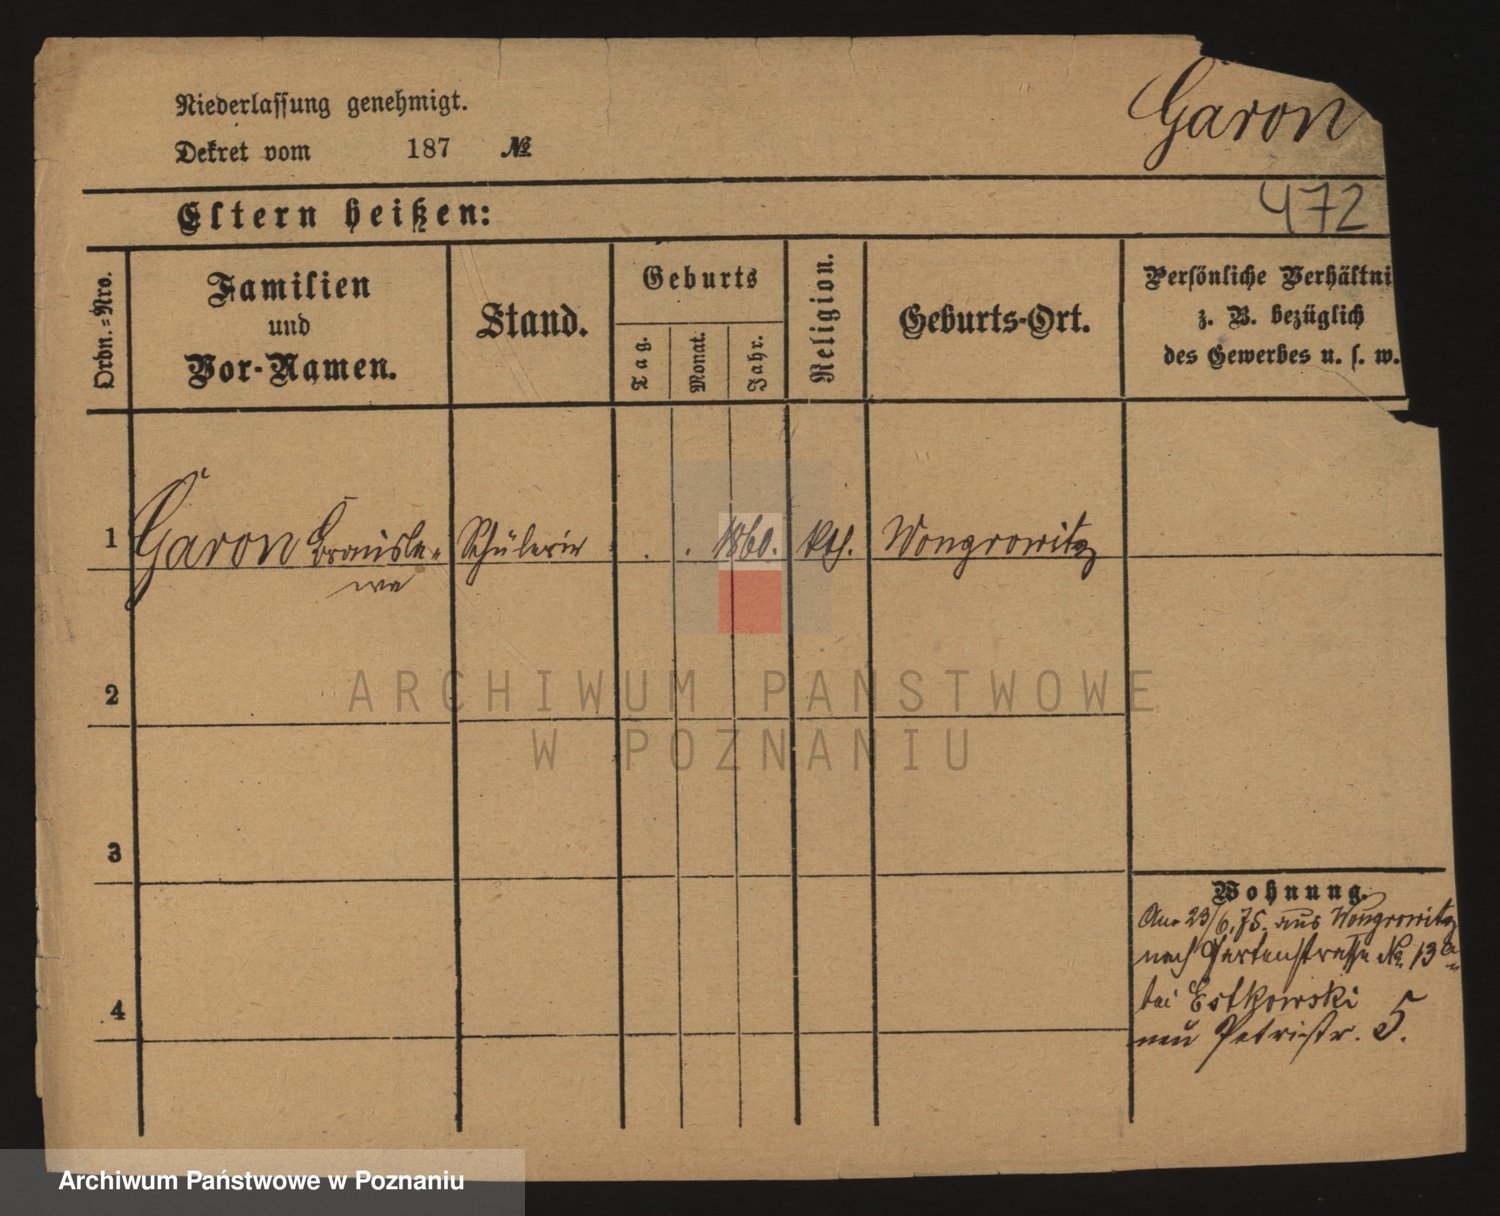 Garon
Niederlassung genehmigt.
Dekret vom 187 №
472
Eltern heißen:
Ordn.=Nro.
Familien
und
Vor-Namen.
Stand.
Geburts
Tag.
Monat.
Jahr.
Religion.
Geburts-Ort.
Persönliche Verhältni
z. B. bezüglich
des Gewerbes u. s. w.
1 Garon Bronisla= Schülerin . . 1860. kth. Wongrowitz
wa
2
3
4
Wohnung.
Am 23/6.75. aus Wongrowitz
nach Gartenstrasse No. 13a
bei Estkowski
neu Petristr. 5.
ARCHIWUM PAŃSTWOWE
W POZNANIU
Archiwum Państwowe w Poznaniu